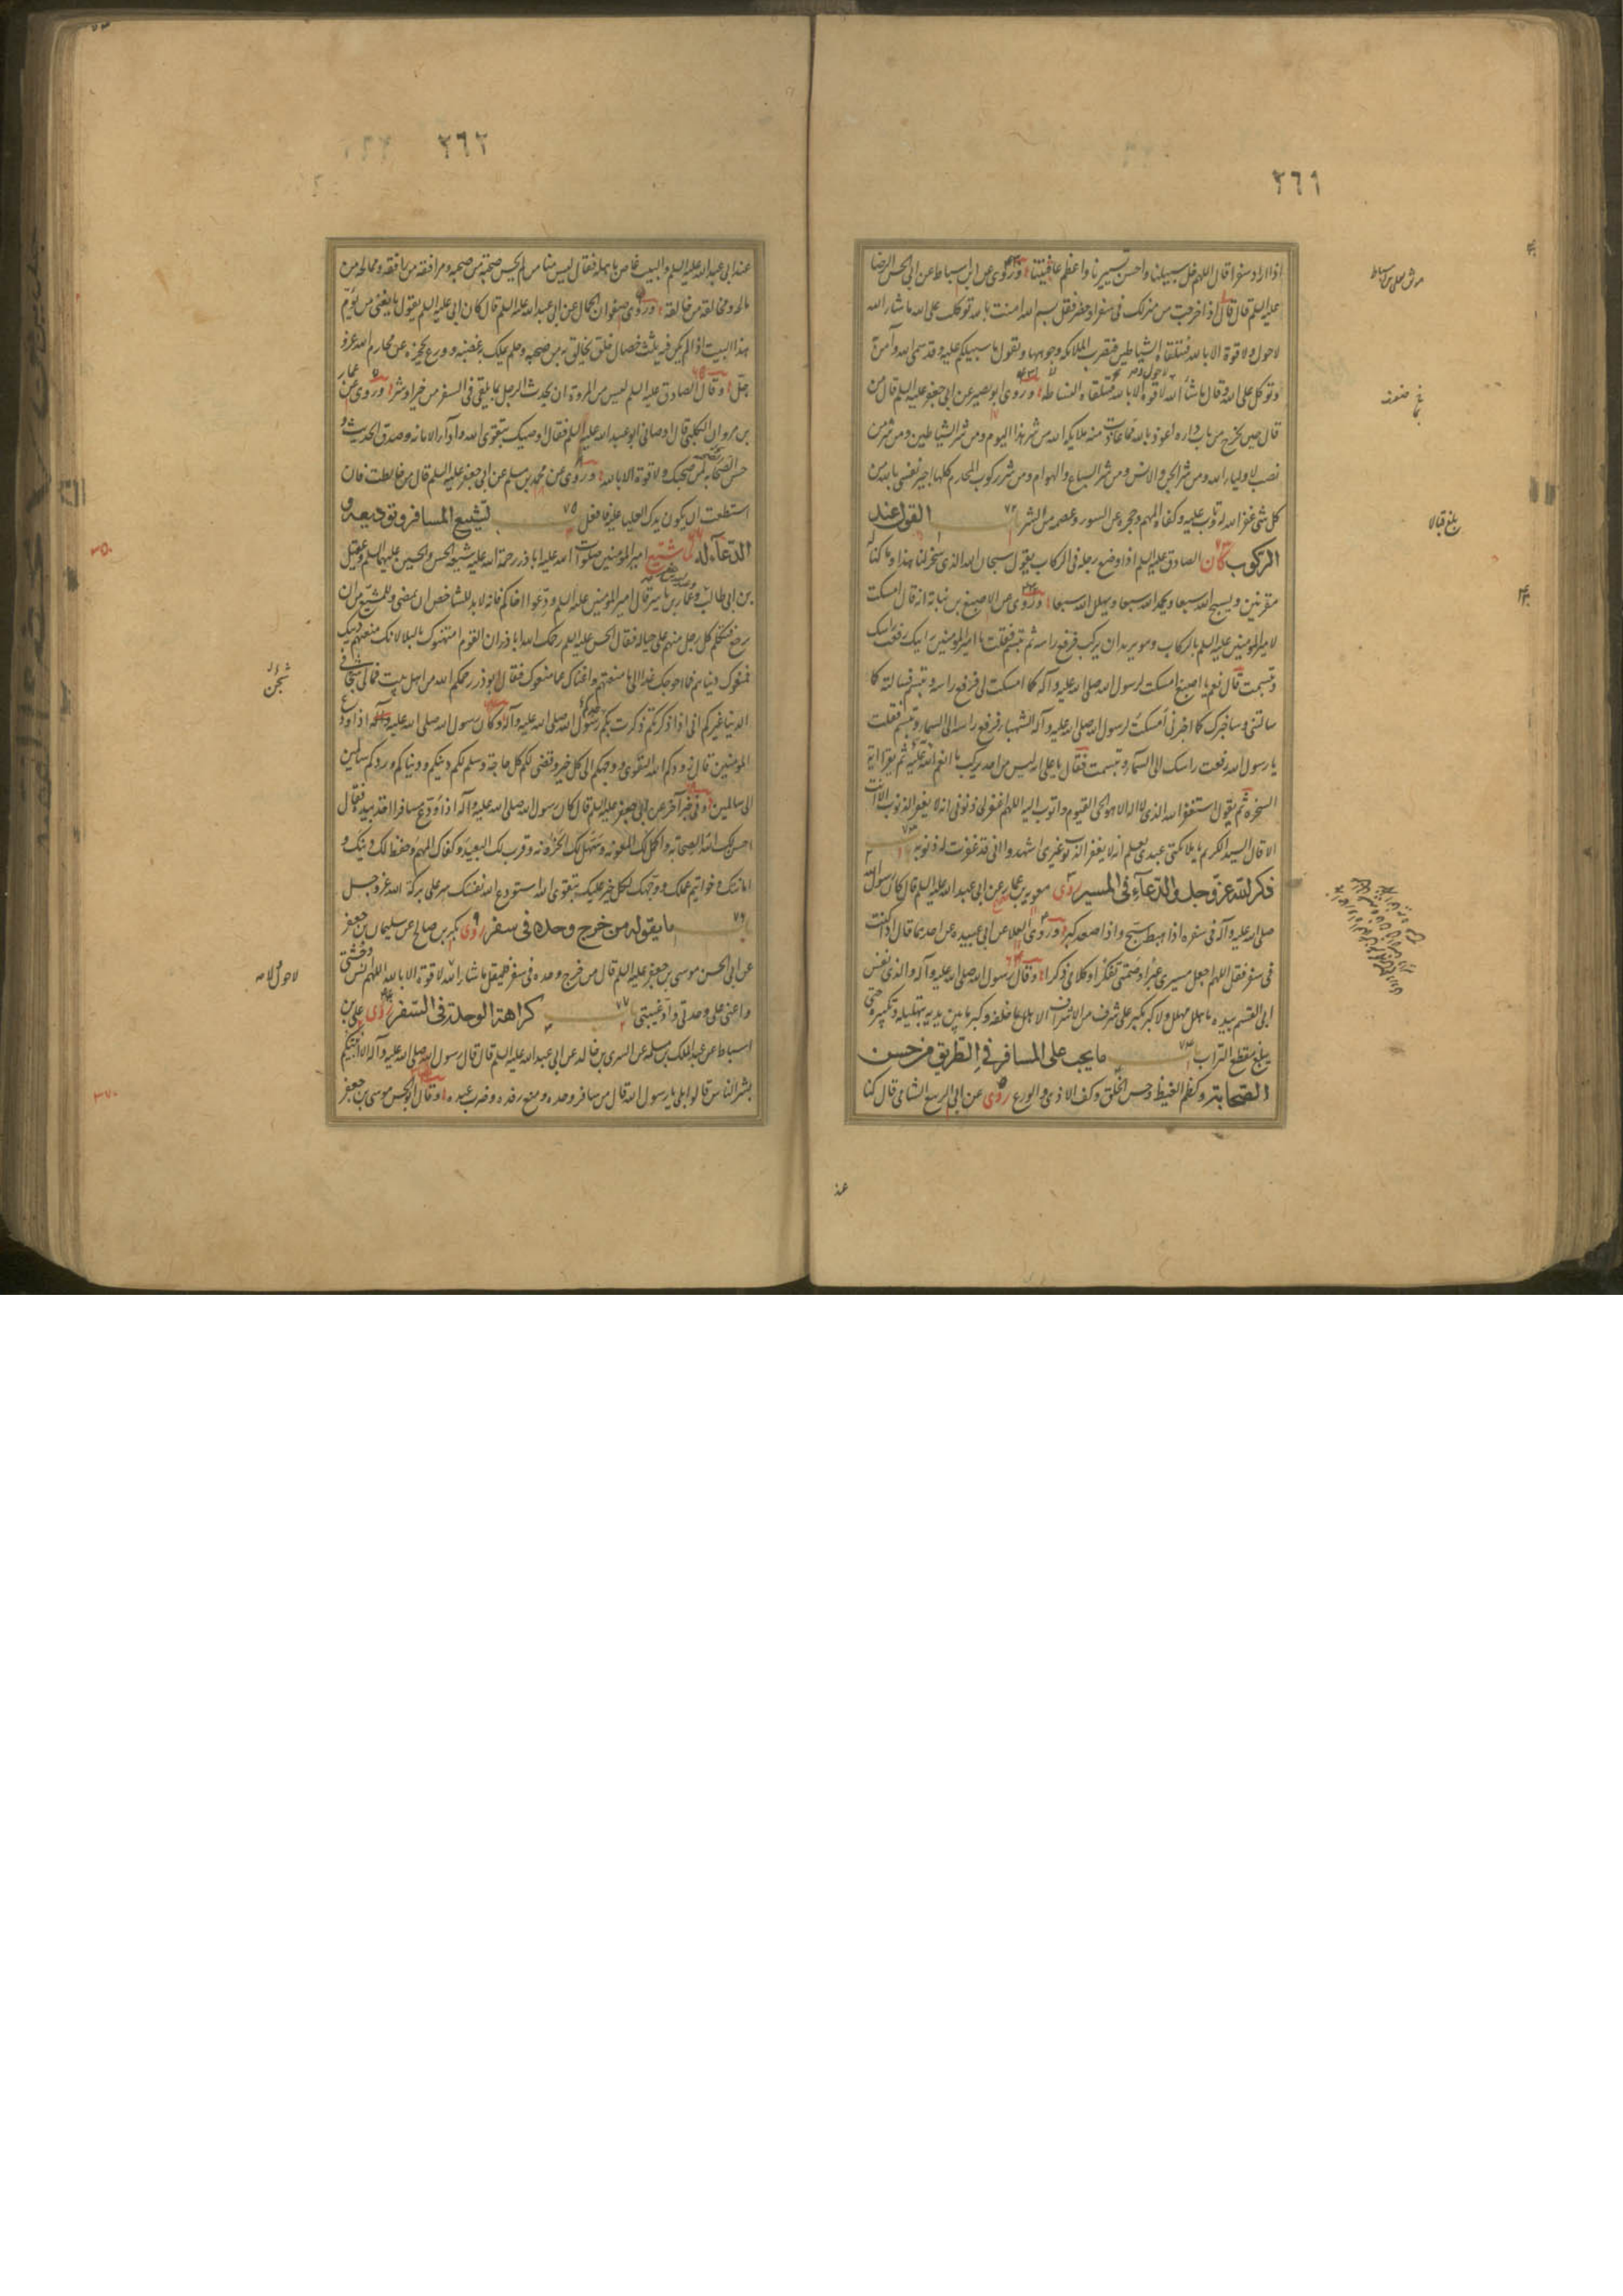 ٢٦١
اذا اراد سفرا قال اللهم خل سبيلنا واحسن تسييرنا واعظم عافيتنا وروى على بن اسباط عن ابى الحسن الرضا
عليه السلم قال قال اذا خرجت من منزلك فى سفر او حضر فقل بسم الله امنت بالله توكلت على الله ما شاء الله
لا حول ولا قوة الا بالله فتلقاه الشياطين فتضرب الملائكه وجوهها وتقول ما سبيلكم عليه وقد سمى الله وآمن به
وتوكل على الله وقال ما شاء الله لا قوة الا بالله وروى ابو بصير عن ابى جعفر عليه السلم قال من
قال حين يخرج من باب داره اعوذ بالله مما عاذت منه ملائكة الله من شر هذا اليوم ومن شر الشياطين ومن شر من
نصب لاولياء الله ومن شر الجن والانس ومن شر السباع والهوام ومن شر ركوب المحارم كلها اجير نفسى بالله من
كل شر غفر الله له وتاب عليه وكفاه المهم وحجزه عن السوء وعصمه من الشر ٧٢ القول عند
الركوب كان الصادق عليه السلم اذا وضع رجله فى الركاب يقول سبحان الذى سخر لنا هذا وما كنا له
مقرنين ويسبح الله سبعا ويحمد الله سبعا ويهلل الله سبعا وروى عن الاصبغ بن نباتة انه قال امسكت
لامير المؤمنين عليه السلم بالركاب وهو يريد ان يركب فرفع راسه ثم تبسم فقلت يا امير المؤمنين رايتك رفعت راسك
وتبسمت قال نعم يا اصبغ امسكت لرسول الله صلى الله عليه وآله كما امسكت لى فرفع راسه وتبسم فسالته كما
سالتنى وساخبرك كما اخبرنى امسكت لرسول الله صلى الله عليه وآله الشهباء فرفع راسه الى السماء وتبسم فقلت
يا رسول الله رفعت راسك الى السماء وتبسمت فقال يا على انه ليس من احد يركب ما انعم الله عليه ثم يقرا اية
السخره ثم يقول استغفر الله الذى لا اله الا هو الحى القيوم واتوب اليه اللهم اغفر لى ذنوبى انه لا يغفر الذنوب الا انت
الا قال السيد الكريم يا ملائكتى عبدى يعلم انه لا يغفر الذنوب غيرى اشهدوا انى قد غفرت له ذنوبه ٧٣
ذكر الله عز وجل والدعاء فى المسير روى معويه بن عمار عن ابى عبد الله عليه السلم قال كان رسول الله
صلى الله عليه وآله فى سفره اذا هبط سبح واذا صعد كبر وروى العلا عن ابى عبيده عن احدهما قال اذا كنت
فى سفر فقل اللهم اجعل مسيرى عبرا وصمتى تفكرا وكلامى ذكرا وقال رسول الله صلى الله عليه وآله والذى نفس
ابى القسم بيده ما هلل مهلل ولا كبر مكبر على شرف من الاشراف الا هلل ما خلفه وكبر ما بين يديه بتهليله وتكبيره حتى
يبلغ مقطع التراب ٧٤ ما يجب على المسافر فى الطريق من حسن
الصحابة وكظم الغيظ وحسن الخلق وكف الاذى والورع روى عن ابى الربيع الشامى قال كنا
عند
بلغ قبالا
٢٦٢
عند ابى عبد الله عليه السلم والبيت غاص باهله فقال ليس منا من لم يحسن صحبة من صحبه ومرافقة من رافقه وممالحة من
مالحه ومخالقة من خالقه وروى صفوان الجمال عن ابى عبد الله عليه السلم قال كان ابى عليه السلم يقول ما يعبأ من يؤم
هذا البيت اذا لم يكن فيه ثلث خصال خلق يخالق به من صحبه وحلم يملك به غضبه وورع يحجزه عن محارم الله عز و
جل وقال الصادق عليه السلم ليس من المروة ان يحدث الرجل بما يلقى فى السفر من خير او شر وروى عن عمار
بن مروان الكلبى قال اوصانى ابو عبد الله عليه السلم فقال اوصيك بتقوى الله واداء الامانه وصدق الحديث و
حسن الصحابة لمن صحبك ولا قوة الا بالله وروى عن محمد بن مسلم عن ابى جعفر عليه السلم قال من خالطت فان
استطعت ان يكون يدك العليا عليه فافعل ٧٥ تشييع المسافر وتوديعه و
الدعاء له لما شيع امير المؤمنين صلوات الله عليه اباذر رحمة الله عليه شيعه الحسن والحسين عليهما السلم وعقيل
بن ابى طالب وعمار بن ياسر قال امير المؤمنين عليه السلم ودعوا اخاكم فانه لا بد للشاخص ان يمضى وللمشيع من ان
يرجع فتكلم كل رجل منهم على حياله فقال الحسن عليه السلم رحمك الله يا باذر ان القوم امتهنوك بالبلاء لانك منعتهم دينك
فمنعوك دنياهم فما احوجك غدا الى ما منعتهم واغناك عما منعوك فقال ابو ذر رحمكم الله من اهل بيت فمالى شجن فى
الدنيا غيركم انى اذا ذكرتكم ذكرت بكم رسول الله صلى الله عليه وآله وكان رسول الله صلى الله عليه وآله اذا ودع
المؤمنين قال زودكم الله التقوى ووجهكم الى كل خير وقضى لكم كل حاجة وسلم لكم دينكم ودنياكم وردكم سالمين
الى سالمين وفى خبر آخر عن ابى جعفر عليه السلم قال كان رسول الله صلى الله عليه وآله اذا ودع مسافرا اخذ بيده فقال
احسن لك الله الصحابة واكمل لك المعونه وسهل لك الحزونه وقرب لك البعيد وكفاك المهم وحفظ لك دينك و
امانتك وخواتيم عملك ووجهك لكل خير عليك بتقوى الله استودع الله نفسك سر على بركة الله عز وجل
٧٦ ما يقوله من خرج وحده فى سفر روى بكر بن صالح عن سليمان بن جعفر
عن ابى الحسن موسى بن جعفر عليه السلم قال من خرج وحده فى سفر فليقل ما شاء الله لا قوة الا بالله اللهم انس وحشتى
واعنى على وحدتى واد غيبتى ٧٧ كراهة الوحدة فى السفر روى على بن
اسباط عن عبد الملك بن مسلمه عن السرى بن خالد عن ابى عبد الله عليه السلم قال قال رسول الله صلى الله عليه وآله الا انبئكم
بشر الناس قالوا بلى يا رسول الله قال من سافر وحده ومنع رفده وضرب عبده وقال ابو الحسن موسى بن جعفر